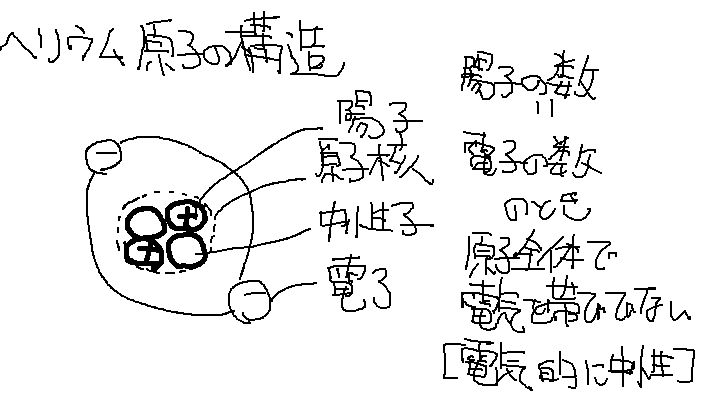 ヘリウム原子の構造
陽子
原子核
中性子
電子
陽子の数
=
電子の数
のとき
原子全体で
電気を帯びてない
[電気的に中性]
+
+
−
−